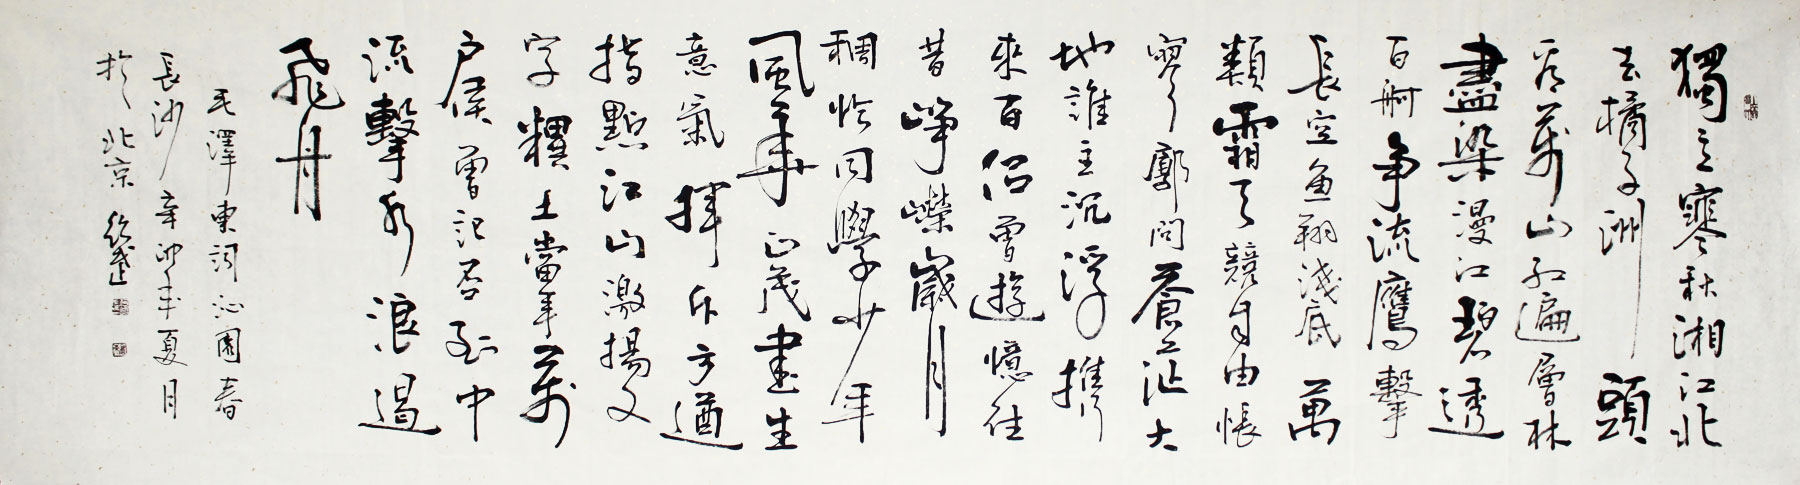 獨立寒秋湘江北
去橘子洲頭
看萬山紅遍層林
盡染漫江碧透
百舸争流鷹擊
長空魚翔淺底萬
類霜天競自由悵
寥廓問蒼茫大
地誰主沉浮攜
來百侣曾遊憶往
昔崢嶸歲月
稠恰同學少年
風華正茂書生
意氣揮斥方遒
指點江山激揚文
字糞土當年萬
户侯曾記否到中
流擊水浪遏
飛舟
毛澤東詞沁園春
長沙辛卯年夏月
於北京